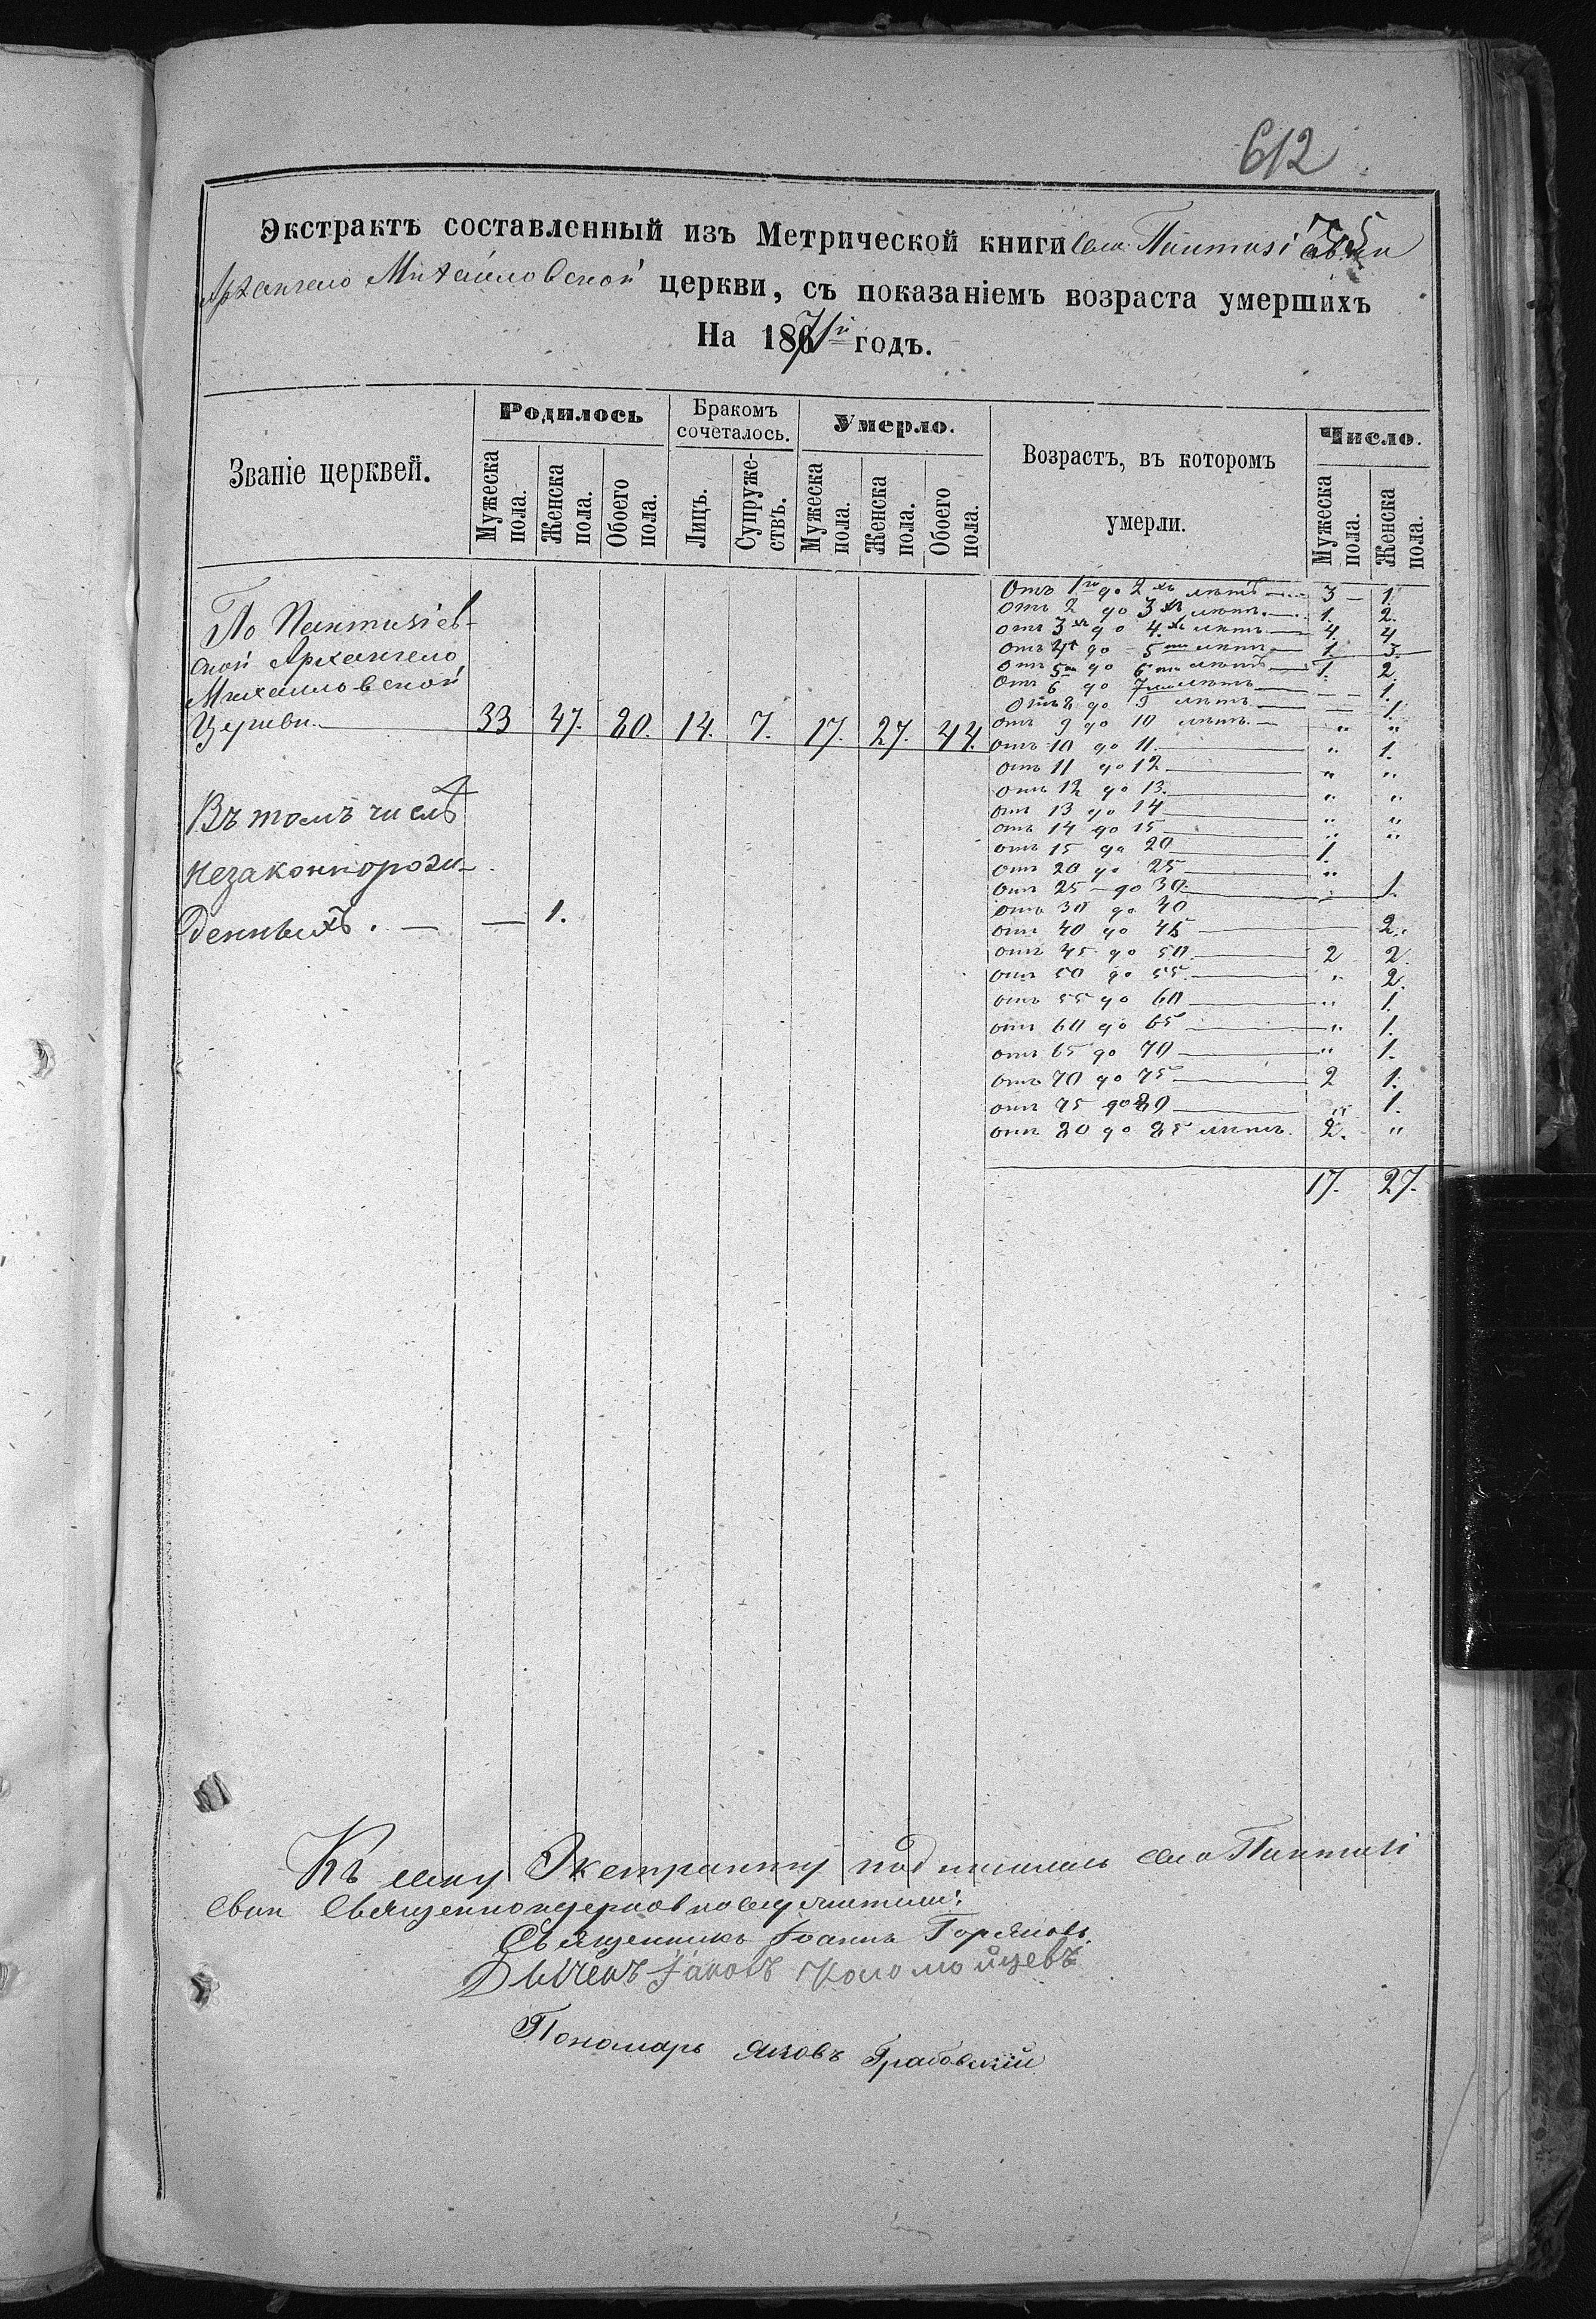 612
Экстрактъ составленный изъ Метрической книги села Пантазіевки
Архангело Михайловской церкви, съ показаніемъ возраста умершихъ
На 1867й годъ.
Званіе церквей.
Родилось
Бракомъ сочеталось.
Умерло.
Возрастъ, въ которомъ умерли.
Число.
Мужеска пола.
Женска пола.
Обоего пола.
Лицъ.
Супруже-ствъ.
Мужеска пола.
Женска пола.
Обоего пола.
Мужеска пола.
Женска пола.
По Пантазіев-
ской Архангело
Михайловской
Церкви 33 47. 80. 14. 7. 17. 27. 44.
Въ томъ числѣ
незаконнорож-
денныхъ. — — 1.
Отъ 1го до 2хъ лѣтъ 3 — 1.
отъ 2 до 3хъ лѣтъ 1. 2.
отъ 3хъ до 4.хъ лѣтъ 4. 4
отъ 4х до 5ти лѣтъ 1. 3.
отъ 5ти до 6ти лѣтъ 1. 2.
отъ 6 до 7ми лѣтъ — 1.
отъ 8 до 9 лѣтъ — 1.
отъ 9 до 10 лѣтъ. " "
отъ 10 до 11. " 1.
отъ 11 до 12 " "
отъ 12 до 13. " "
отъ 13 до 14 " "
отъ 14 до 15 " "
отъ 15 до 20 1.
отъ 20 до 25 "
отъ 25 до 30. " 1.
отъ 30 до 40
отъ 40 до 45 2.
отъ 45 до 50. 2 2.
отъ 50 до 55. " 2.
отъ 55 до 60 " 1.
отъ 60 до 65 " 1.
отъ 65 до 70 " 1.
отъ 70 до 75 2 1.
отъ 75 до 80 " 1.
отъ 80 до 85 лѣтъ. 2. "
17. 27.
Къ сему Экстракту подписались села Пантазі
евки Священноцерковнослужители:
Священникъ Іоаннъ
Дьячекъ Іаковъ Коломойцевъ
Пономарь Яковъ Грабовскій